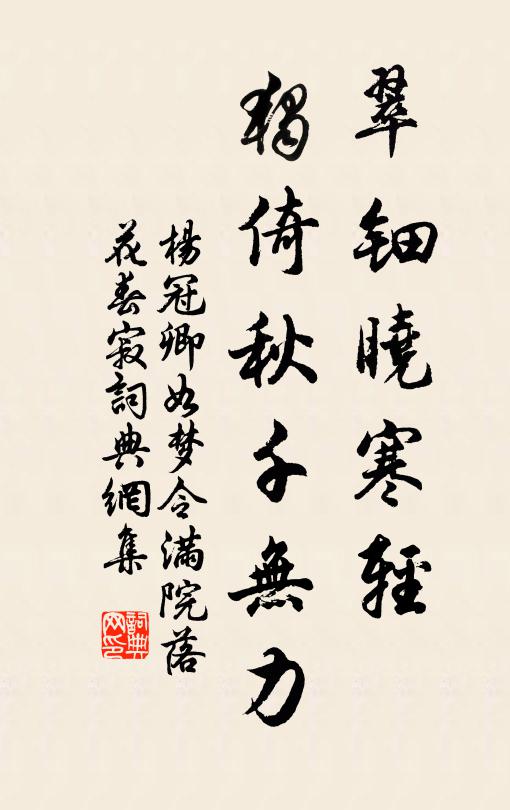 翠鈿曉寒輕
獨倚秋千無力
楊冠卿如梦令满院落
花春寂詞典網集
詞典网印